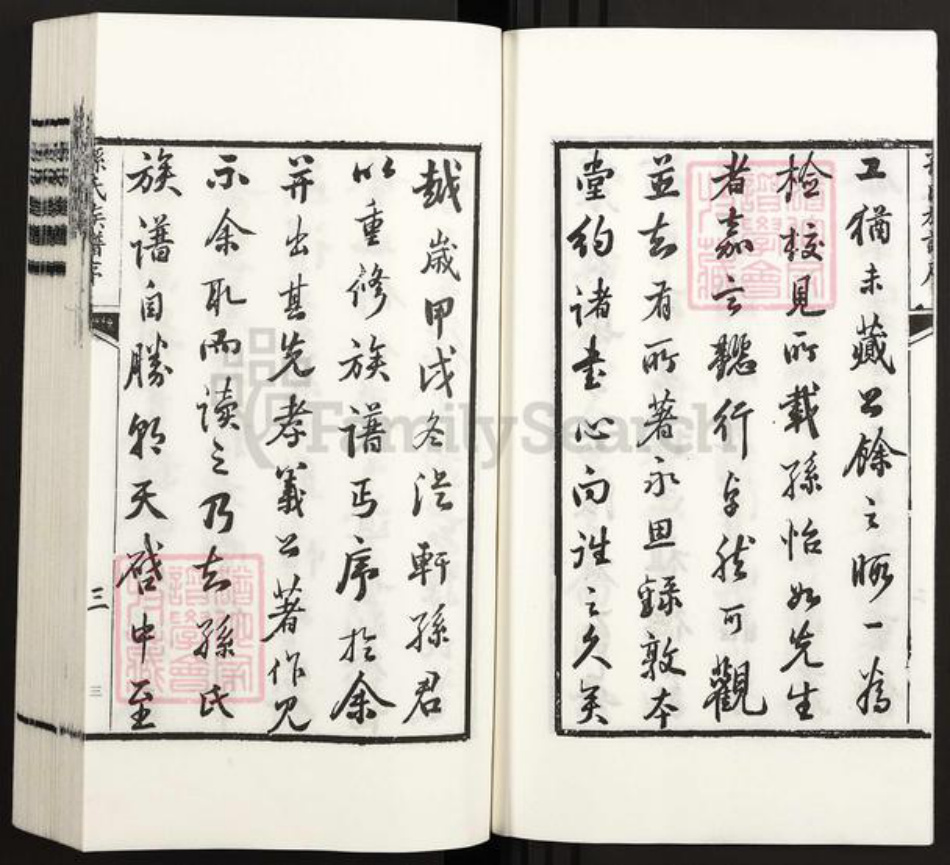 工猶未藏公餘之暇一為
檢校見所載孫怡如先生
者嘉言懿行卓然可觀
並知有所著永思錄敦本
堂約諸書心向往之久矣
越歲甲戌冬浩軒孫君
以重修族譜丐序於余
並出其先孝義公著作見
示余取而讀之乃知孫氏
族譜自勝朝天啟中至
孫氏族譜序
三
三
FamilySearch